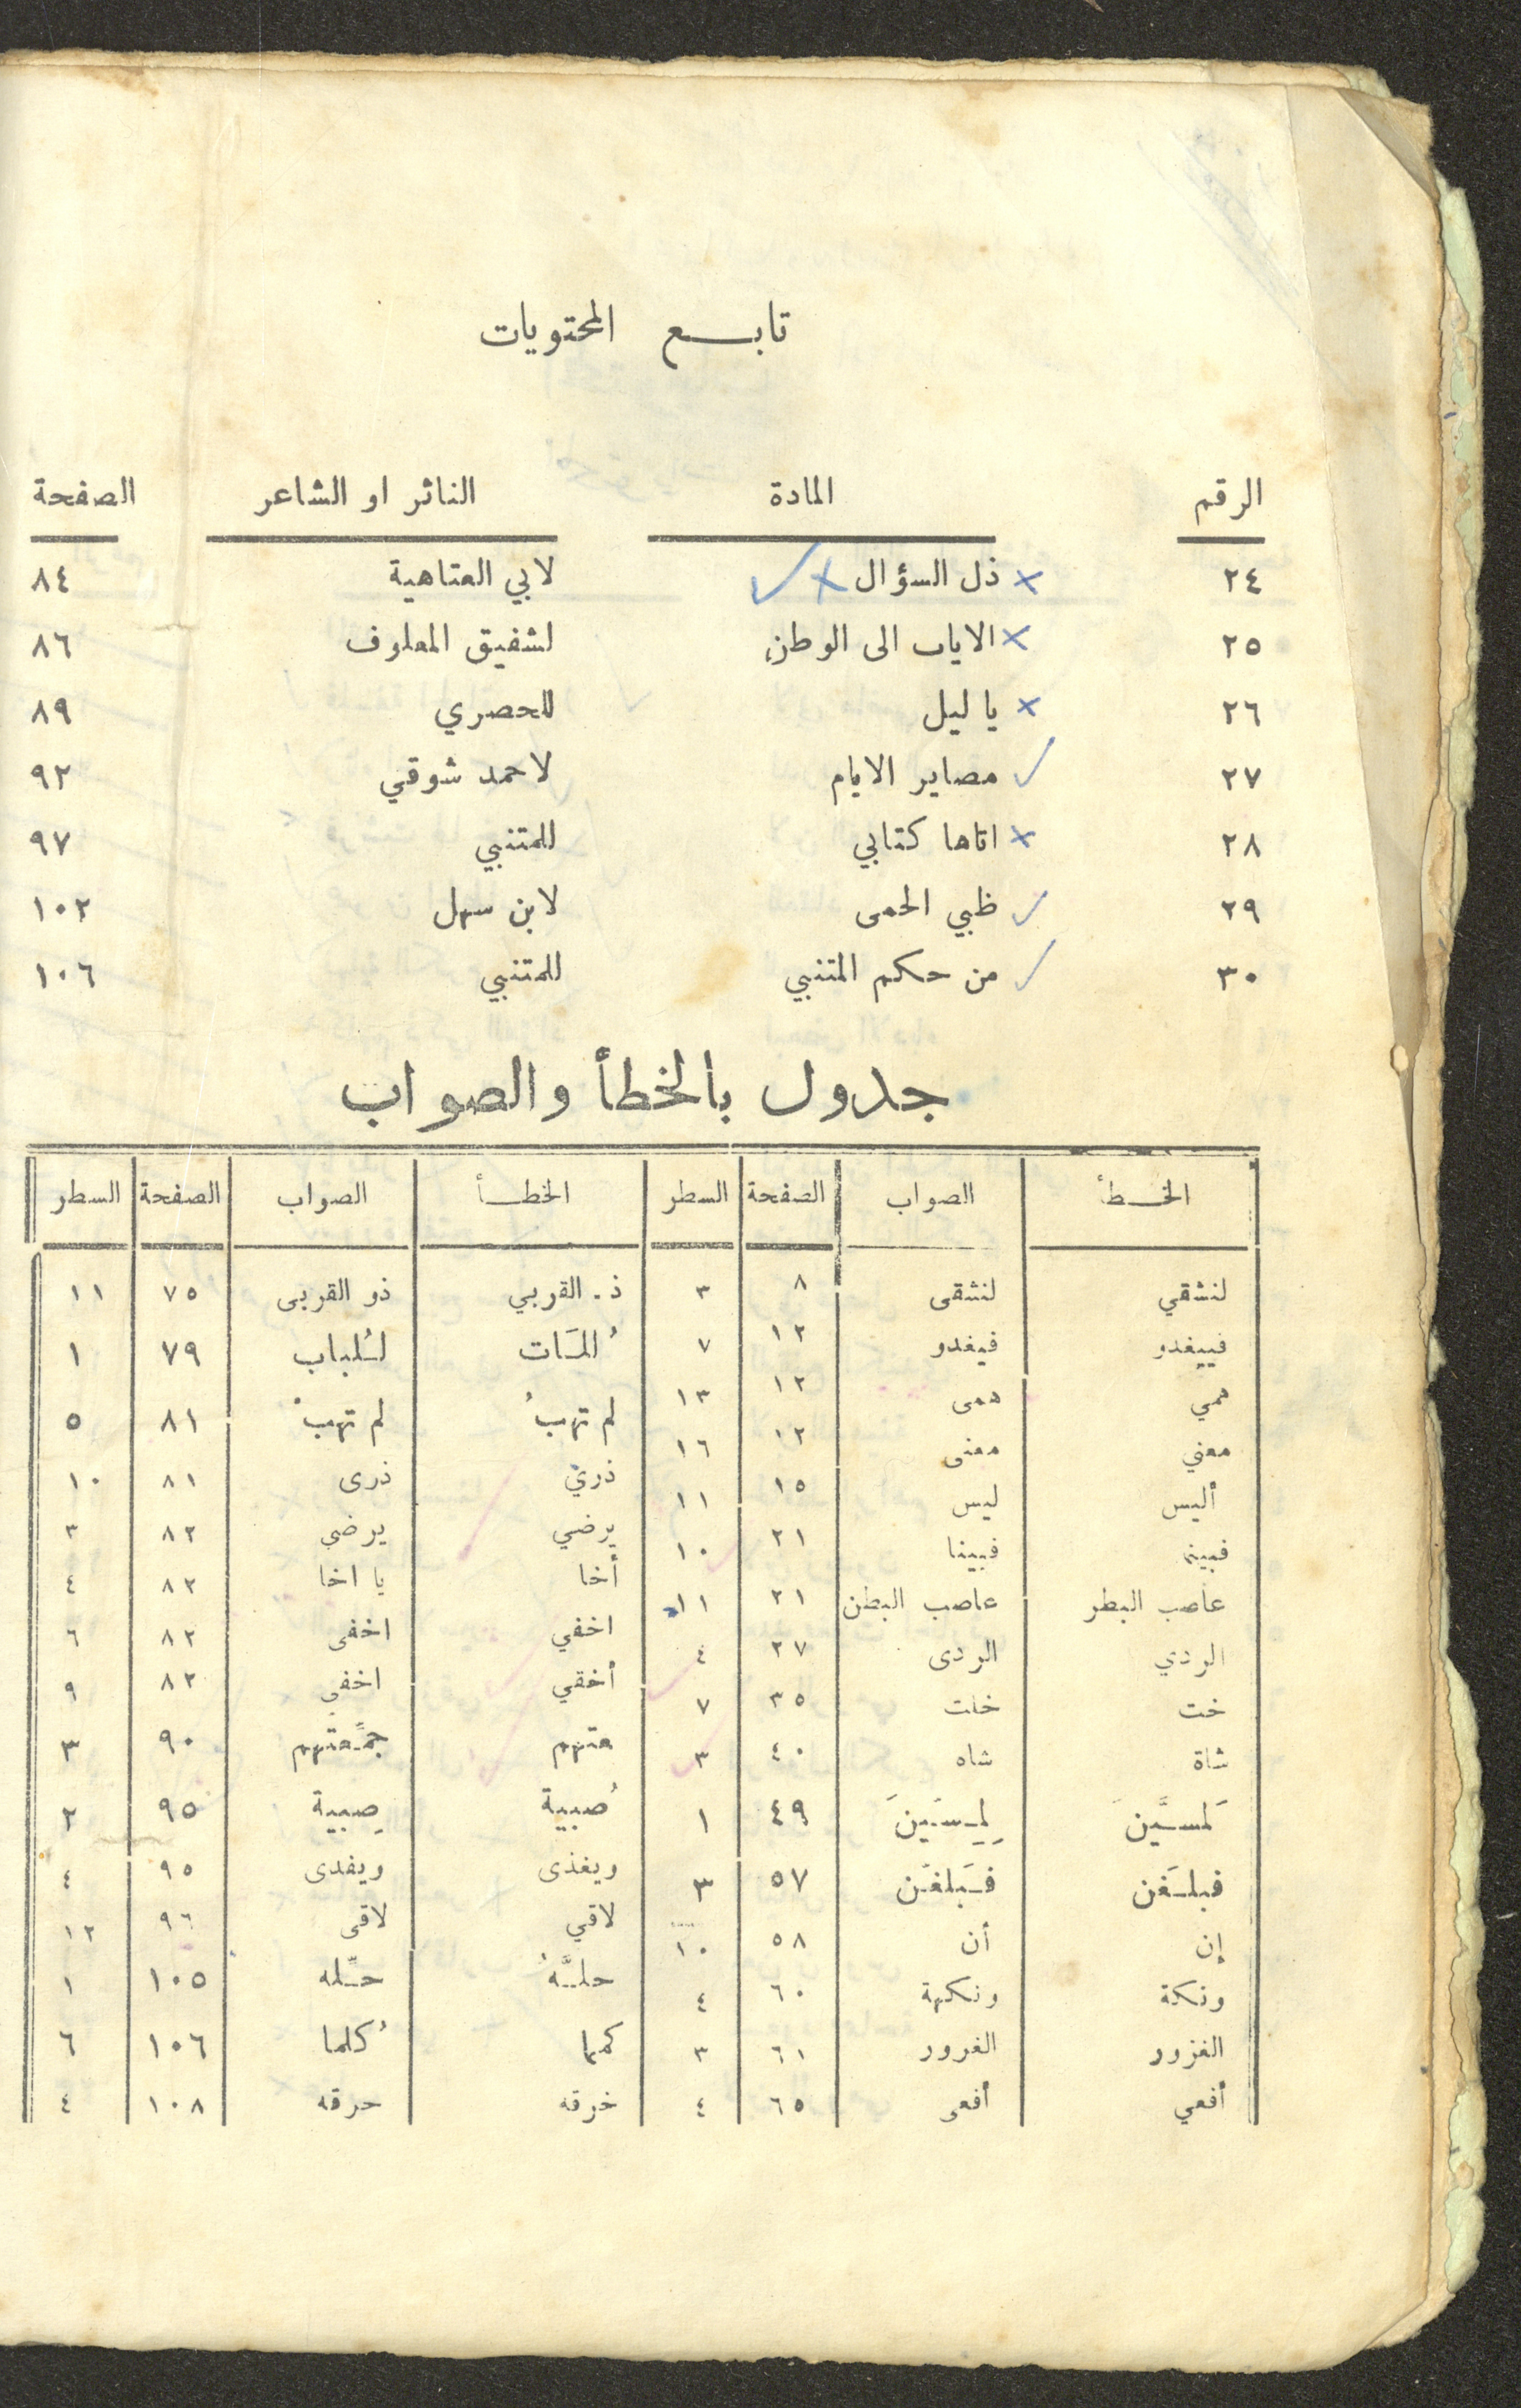 تابع المحتويات
الرقم المادة الناثر او الشاعر الصفحة
٢٤ ذل السؤال لابي العتاهية ٨٤
٢٥ الاياب الى الوطن لشفيق المعلوف ٨٦
٢٦ يا ليل للحصري ٨٩
٢٧ مصاير الايام لاحمد شوقي ٩٢
٢٨ اتاها كتابي للمتنبي ٩٧
٢٩ ظبي الحمى لابن سهل ١٠٢
٣٠ من حكم المتنبي للمتنبي ١٠٦
جدول بالخطأ والصواب
الخطأ الصواب الصفحة السطر الخطأ الصواب الصفحة السطر
لنشقي لنشقى ٨ ٣ ذ. القربي ذو القربى ٧٥ ١١
فييغدو فيغدو ١٢ ٧ لسُلباب ٧٩ ١
همي همى ١٢ ١٣ لم تهبُ لم تهبْ ٨١ ٥
معني معنى ١٢ ١٦ ذري ذرى ٨١ ١٠
أليس ليس ١٥ ١١ يرضي يرضى ٨٢ ٣
فبينم فبينا ٢١ ١٠ أخا يا اخا ٨٢ ٤
عاصب البطر عاصب البطن ٢١ ١١ اخفي اخفى ٨٢ ٦
الردي الردى ٢٧ ٤ أخفي اخفي ٨٢ ٩
خت خلت ٣٥ ٧ عتهم جمَّعتهم ٩٠ ٣
شاة شاه ٤٠ ٣ صُبية صِبية ٩٥ ٢
لَمسَّينَ لِمِسَينَ ٤٩ ١ ويغذى ويفدى ٩٥ ٤
فبلـغَن فَبلغَن ٥٧ ٣ لاقي لاقى ٩٦ ١٢
إن أن ٥٨ ١٠ حلَّهُ حلّه ١٠٥ ١
ونكة ونكهة ٦٠ ٤ كمما كُلما ١٠٦ ٦
الغزور الغرور ٦١ ٣ خرقه حرقه ١٠٨ ٤
أفعي أفعى ٦٥ ٤